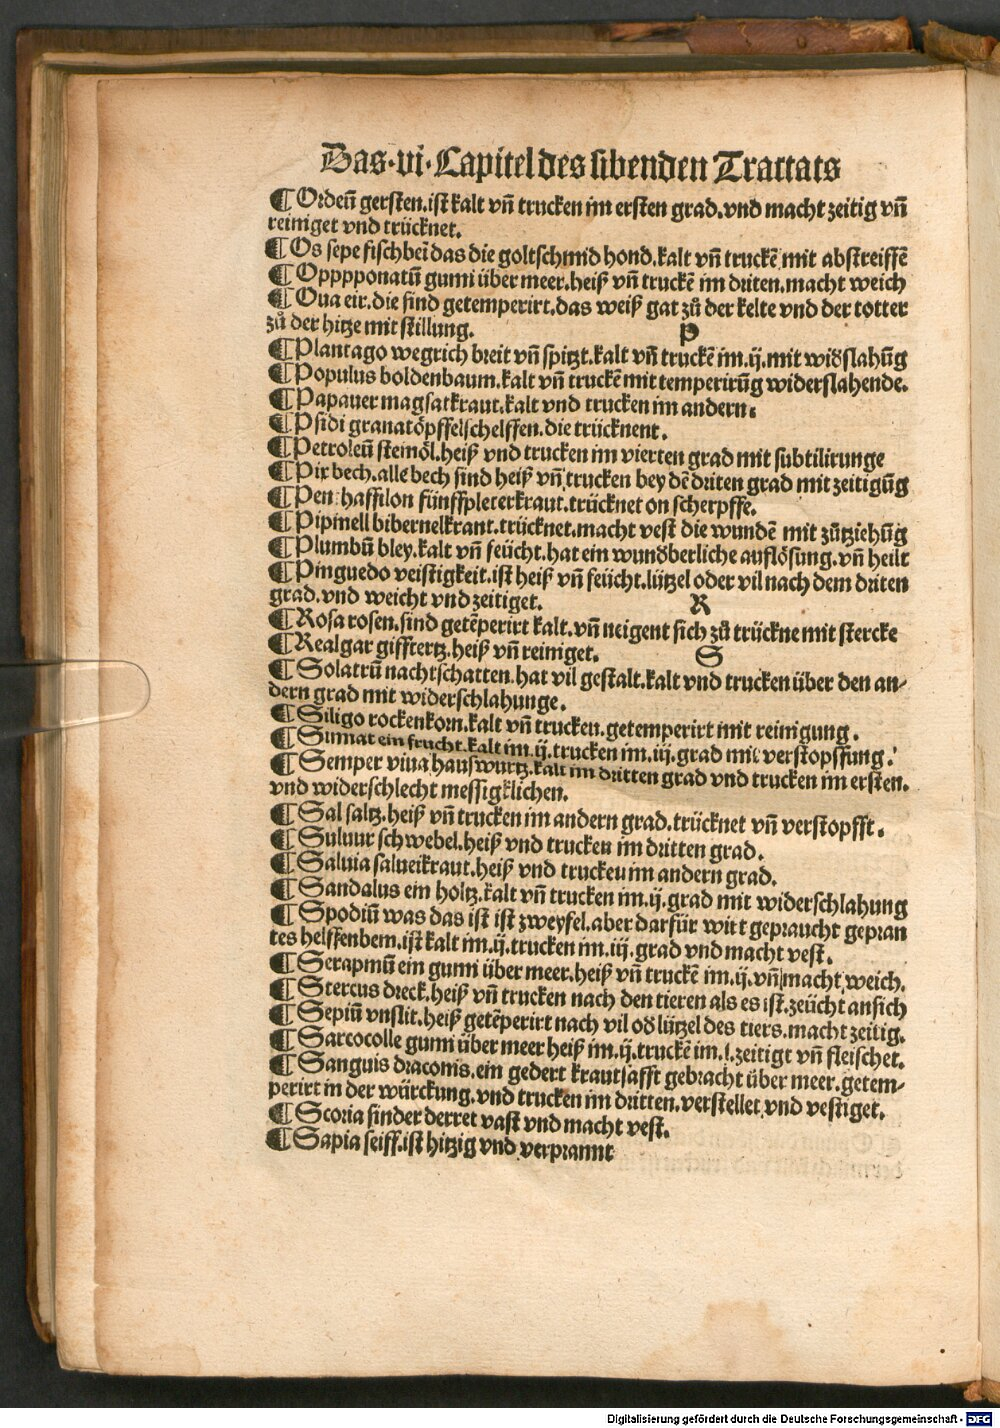 Das·vi·Capitel des sibenden Tractats
¶Ordeū gersten.ist kalt vn̄ trucken im ersten grad.vnd macht zeitig vn̄
reiniget vnd trücknet.
¶Os sepe fischbeī das die goltschmid hond.kalt vn̄ truckē mit abstreiffē
¶Opppponatū gumi über meer.heiß vn̄ truckē im driten.macht weich
¶Oua eir.die sind getemperirt.das weiß gat zů der kelte vnd der totter
zů der hitze mit stillung.
P
¶Plantago wegrich breit vn̄ spitzt.kalt vn̄ truckē im.ij.mit widslahūg
¶Populus boldenbaum.kalt vn̄ truckē mit temperirūg widerslahende.
¶Papauer magsatkraut.kalt vnd trucken im andern.
¶Psidi granatöpffelschelffen.die trücknent.
¶Petroleū steinöl.heiß vnd trucken im vierten grad mit subtilirunge
¶Pix bech.alle bech sind heiß vn̄ trucken bey dē driten grad mit zeitigūg
¶Pen thaffilon fünffpleterkraut.trücknet on scherpffe.
¶Pipinell bibernelkraut.trücknet.macht vest die wundē mit zůtziehūg
¶Plumbū bley.kalt vn̄ feücht.hat ein wundberliche auflösung.vn̄ heilt
¶Pinguedo veistigkeit.ist heiß vn̄ feücht.lützel oder vil nach dem driten
grad.vnd weicht vnd zeitiget.
R
¶Rosa rosen.sind getēperirt kalt.vn̄ neigent sich zů trückne mit stercke
¶Realgar gifftertz.heiß vn̄ reiniget.
S
¶Solatrū nachtschatten.hat vil gestalt.kalt vnd trucken über den an-
dern grad mit widerschlahunge.
¶Siligo rockenkorn.kalt vn̄ trucken.getemperirt mit reinigung.
¶Sumat ein frucht.kalt im.ij.trucken im.iij.grad mit verstopffung.
¶Semper viua hauswurtz.kalt im dritten grad vnd trucken im ersten.
vnd widerschlecht messigklichen.
¶Sal saltz.heiß vn̄ trucken im andern grad.trücknet vn̄ verstopfft.
¶Suluur schwebel.heiß vnd trucken im dritten grad.
¶Saluia salueikraut.heiß vnd trucken im andern grad.
¶Sandalus ein holtz.kalt vn̄ trucken im.ij.grad mit widerschlahung
¶Spodiū was das ist ist zweyfel.aber darfür wirt gepraucht gepran
tes helffenbein.ist kalt im.ij.trucken im.iij.grad vnd macht vest.
¶Serapinū ein gumi über meer.heiß vn̄ truckē im.ij.vn̄ macht weich.
¶Stercus dreck.heiß vn̄ trucken nach den tieren als es ist.zeücht ansich
¶Sepiū vnslit.heiß getēperirt nach vil od lützel des tiers.macht zeitig.
¶Sarcocolle gumi über meer heiß im.ij.truckē im.j.zeitigt vn̄ fleischet.
¶Sanguis draconis.ein gedert krautsafft gebracht über meer.getem-
perirt in der würckung.vnd trucken im dritten.verstellet vnd vestiget.
¶Scoria sinder derret vast vnd macht vest.
¶Sapia seiff.ist hitzig vnd verprannt
Digitalisierung gefördert durch die Deutsche Forschungsgemeinschaft - DFG